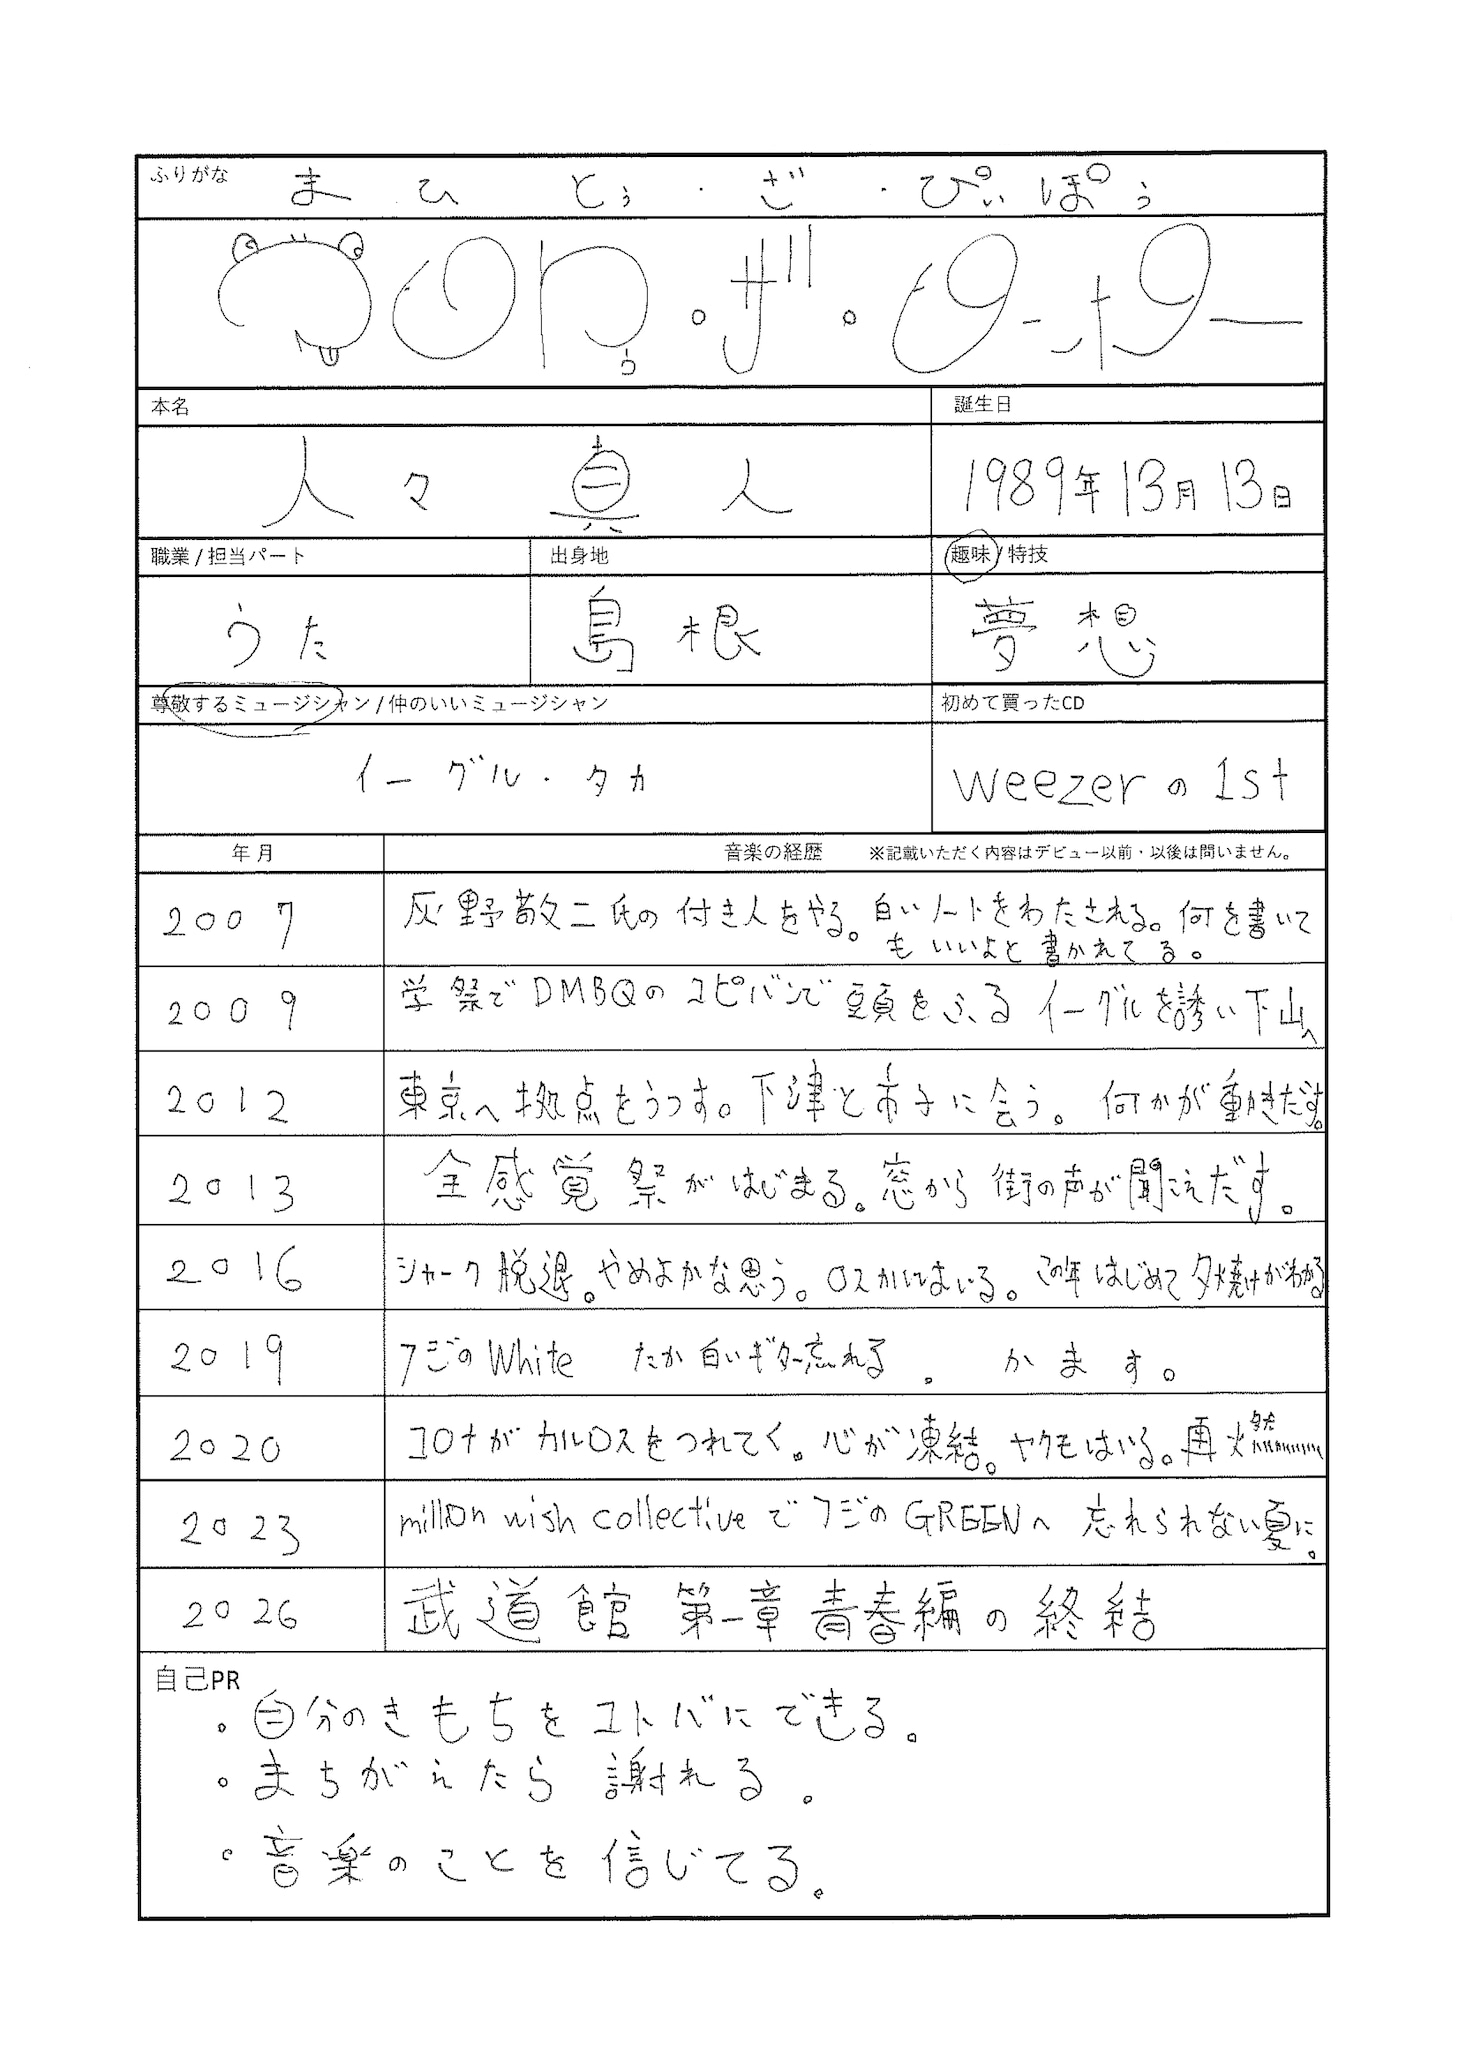 ふりがな
まひとぅ・ざ・ぴぃぽぅ
マヒトゥ・ザ・ピーポー
本名
誕生日
人々 真人
1989年13月13日
職業/担当パート
出身地
趣味/特技
うた
島根
夢想
尊敬するミュージシャン/仲のいいミュージシャン
初めて買ったCD
イーグル・タカ
weezerの1st
年月
音楽の経歴 ※記載いただく内容はデビュー以前・以後は問いません。
2007
灰野敬二氏の付き人をやる。白いノートをわたされる。何を書いて
もいいよと書かれてる。
2009
学祭でDMBQのコピバンで頭をふるイーグルを誘い下山へ
2012
東京へ拠点をうつす。下津と市子に会う。何かが動きだす。
2013
全感覚祭がはじまる。窓から街の声が聞こえだす。
2016
シャーク脱退。やめよかな思う。ロスカルはいる。この年はじめて夕焼けがわかる
2019
フジのWhite たか白いギター忘れる。かます。
2020
コロナがカルロスをつれてく。心が凍結。ヤクモはいる。再燃
2023
million wish collectiveでフジのGREENへ 忘れられない夏に。
2026
武道館 第一章青春編の終結
自己PR
。自分のきもちをコトバにできる。
。まちがえたら謝れる。
。音楽のことを信じてる。